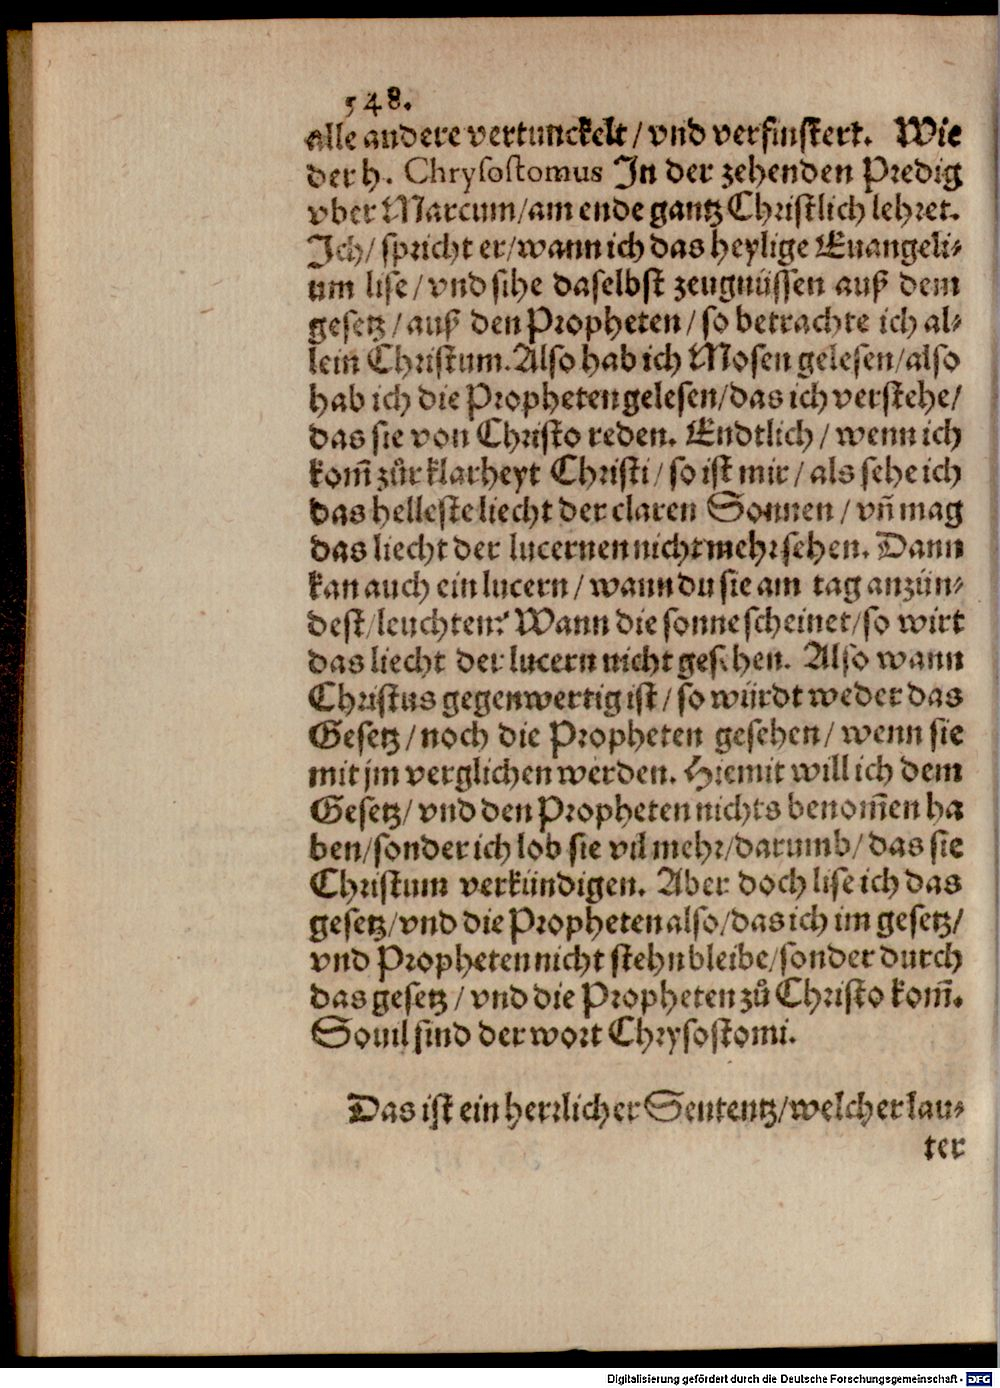 548.
alle andere vertunckelt / vnd verfinstert. Wie
der h. Chrysostomus In der zehenden Predig
vber Marcum/am ende gantz Christlich lehret.
Ich/ spricht er/wann ich das heylige Euangeli-
um lise / vnd sihe daselbst zeugnüssen auß dem
gesetz / auß den Propheten / so betrachte ich al-
lein Christum. Also hab ich Mosen gelesen/also
hab ich die Propheten gelesen/das ich verstehe/
das sie von Christo reden. Endtlich / wenn ich
kom̃ zůr klarheyt Christi / so ist mir / als sehe ich
das helleste liecht der claren Sonnen / vñ mag
das liecht der lucernen nicht mehr sehen. Dann
kan auch ein lucern / wann du sie am tag anzün-
dest/leuchten? Wann die sonne scheinet/so wirt
das liecht der lucern nicht gesehen. Also wann
Christus gegenwertig ist / so würdt weder das
Gesetz / noch die Propheten gesehen / wenn sie
mit jm verglichen werden. Hiemit will ich dem
Gesetz/ vnd den Propheten nichts benom̃en ha
ben/sonder ich lob sie vil mehr/darumb/ das sie
Christum verkündigen. Aber doch lise ich das
gesetz/vnd die Propheten also/das ich im gesetz/
vnd Propheten nicht stehn bleibe/sonder durch
das gesetz / vnd die Propheten zů Christo kom̃.
Souil sind der wort Chrysostomi.
Das ist ein herrlicher Sententz/welcher lau-
ter
Digitalisierung gefördert durch die Deutsche Forschungsgemeinschaft - DFG